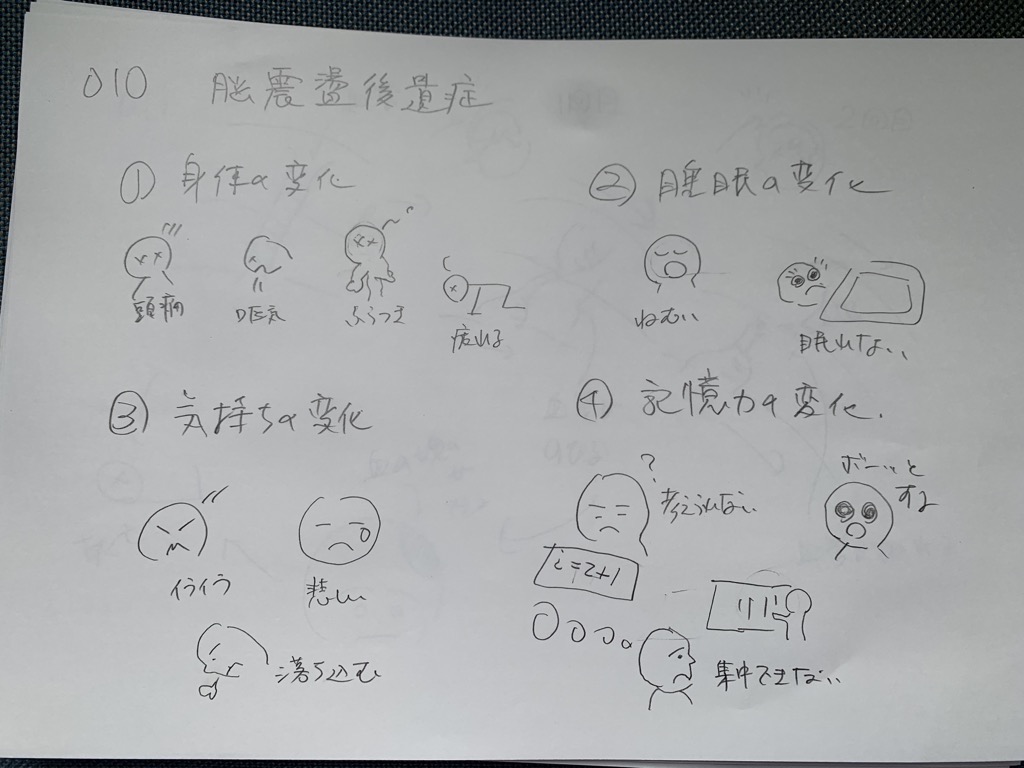 010 脳震盪後遺症
① 身体の変化
頭痛
吐気
ふらつき
疲れる
② 睡眠の変化
ねむい
眠れない
③ 気持ちの変化
イライラ
悲しい
落ち込む
④ 記憶力の変化.
?
考えられない
ボーッと
する
集中できない